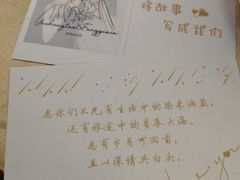 将故事
写成我们
愿你们不光有生活中的柴米油盐，
还有旅途中的星辰大海。
愿有岁月可回首，
且以深情共白头。